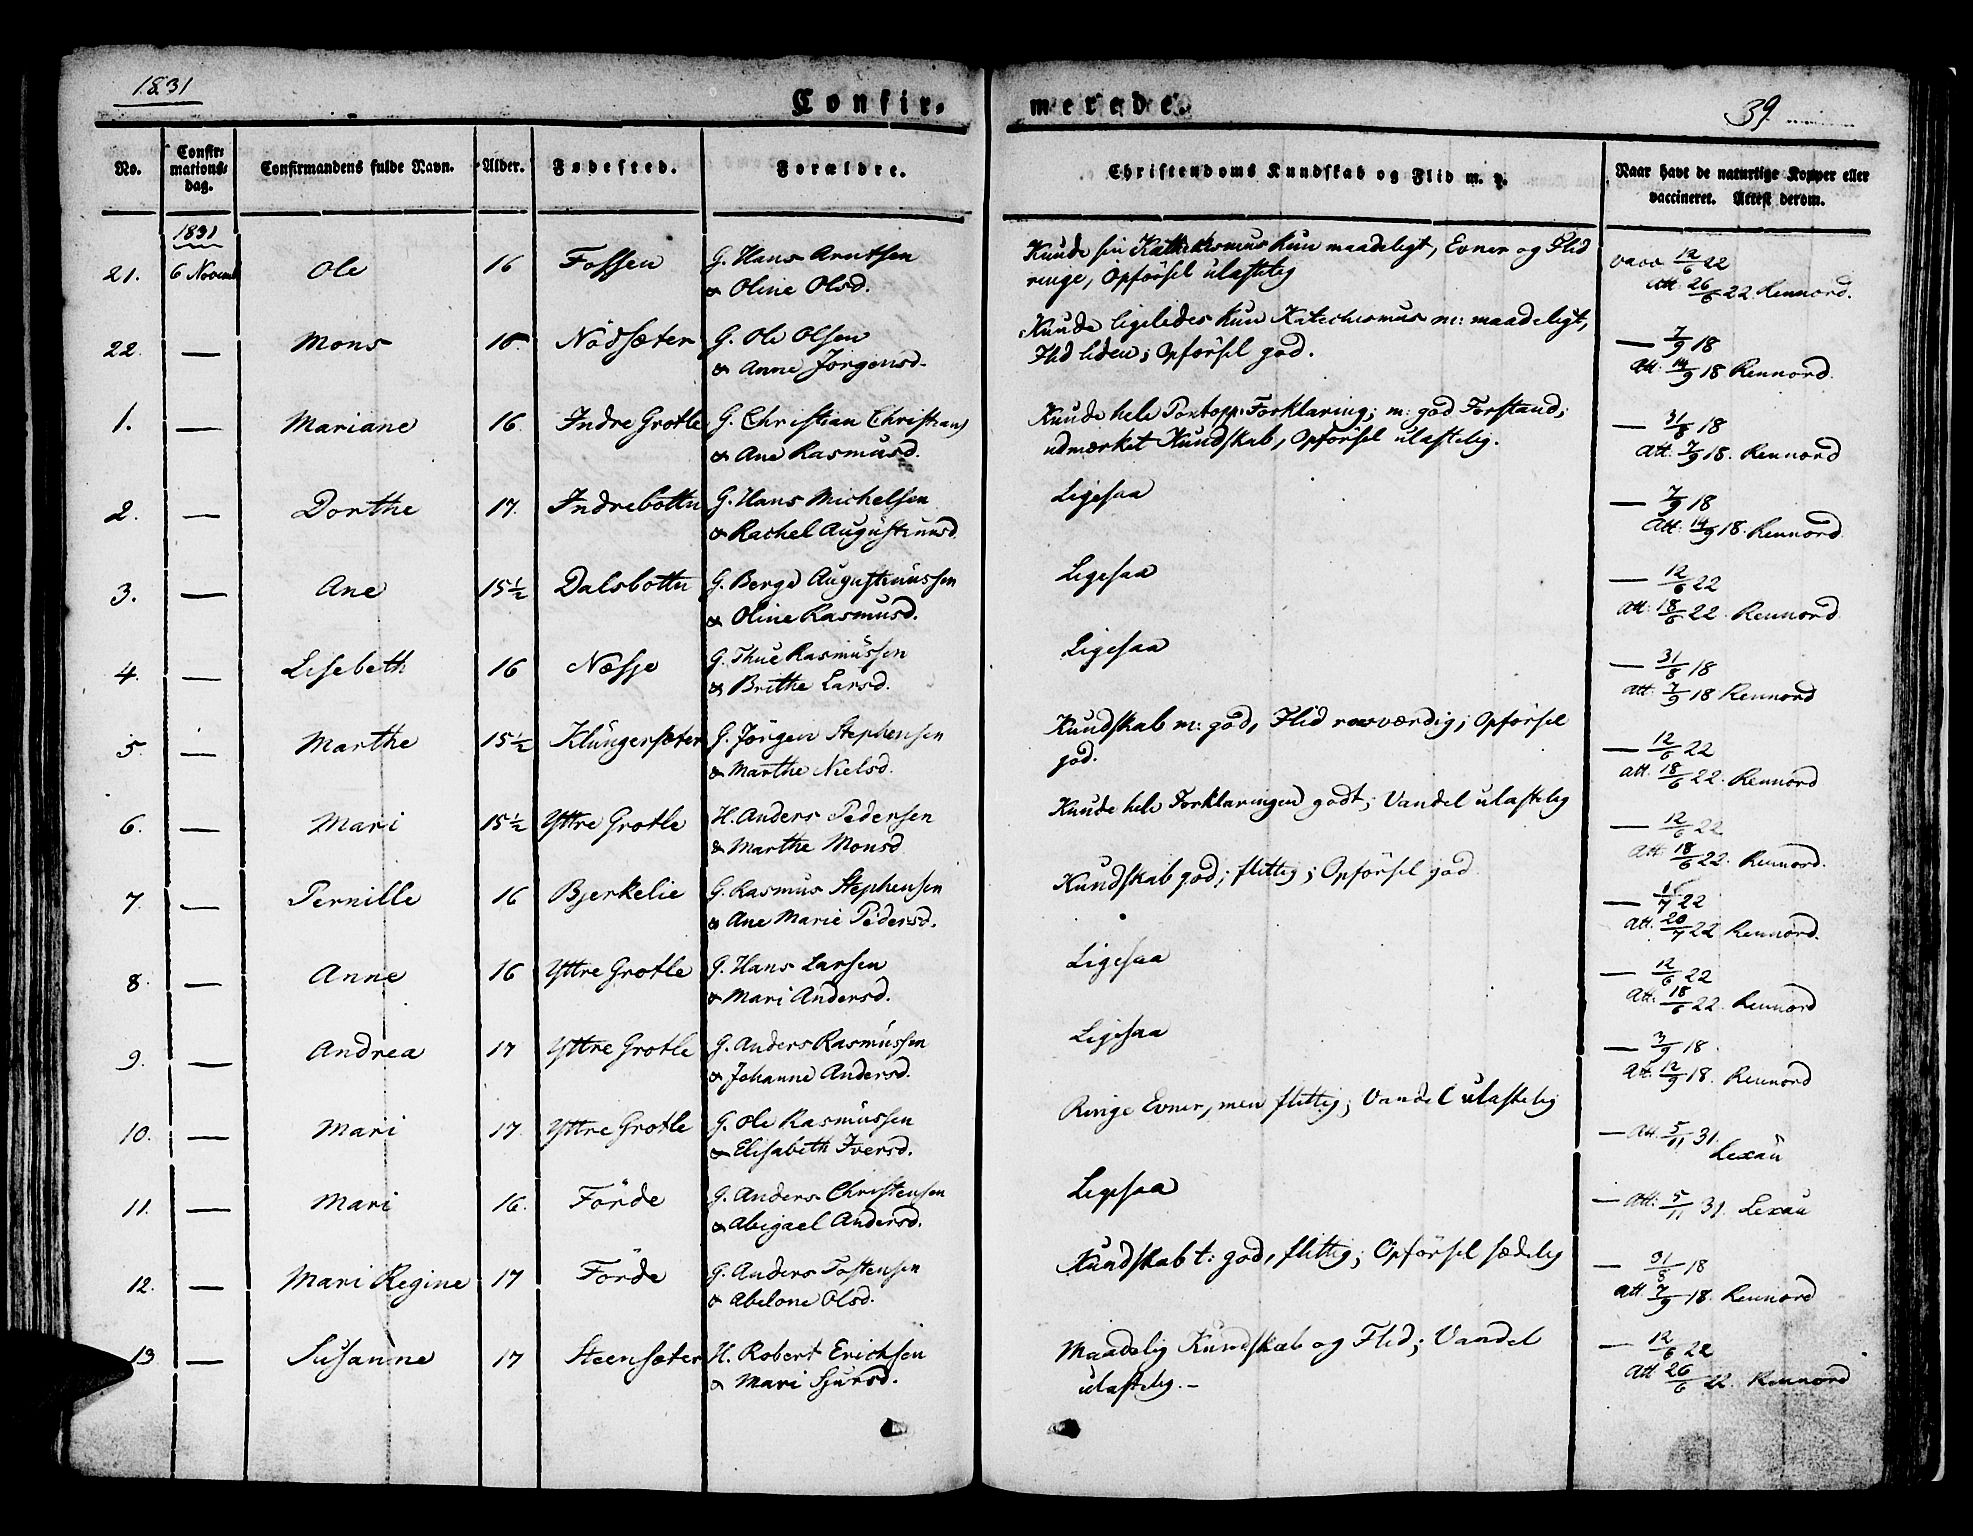 1831
Confir-
merede.
39
No.
Confir-
mations-
dag.
Confirmandens fulde Navn.
Alder.
Fødested.
Forældre.
Christendoms Kundskab og Flid m. v.
Naar havt de naturlige Kopper eller
vaccineret. Attest derom.
1831
21. 6 Novemb Ole 16 Fossen G. Hans Arntsen
& Oline Olsd.
Kunde sin Kathekismus kun maadeligt, Evner og Flid
ringe, Opförsel ulastelig
vacc 12/6 22
Att. 26/6 22. Rennord.
22. — Mons 18 Nödsæter G. Ole Olsen
& Anne Jörgensd.
Kunde ligeledes kun Katechismus m: maadeligt,
Flid liden; Opförsel god.
— 7/9 18
Att. 14/9 18 Rennord.
1. — Mariane 16 Indre Grotle G. Christian Christians
& Ane Rasmusd.
Kunde hele Pontopp: Forklaring; m: god Forstand;
udmærket Kundskab, Opförsel ulastelig.
— 31/8 18
Att. 7/9 18. Rennord
2. — Dorthe 17. Indrebotten G. Hans Michelsen
& Rachel Augustinusd.
Ligesaa
— 7/9 18
Att. 14/9 18. Rennord.
3. — Ane 15½ Dalsbotten G. Berge Augustinussen
& Oline Rasmusd.
Ligesaa
— 12/6 22
Att. 18/6 22. Rennord.
4. — Lisebeth 16 Næsje G. Thue Rasmussen
& Brithe Larsd.
Ligesaa
— 31/8 18
Att. 7/9 18 Rennord
5. — Marthe 15½ Klüngersæter G. Jörgen Stephensen
& Marthe Nielsd.
Kundskab m: god, Flid rosværdig; Opförsel
god.
— 12/6 22
Att. 18/6 22. Rennord
6. — Mari 15½ Yttre Grotle H. Anders Pedersen
& Marthe Monsd
Kunde hele Forklaringen godt; Vandel ulastelig
— 12/6 22
Att. 18/6 22. Rennord.
7. — Pernille 16 Bjerkelie G. Rasmus Stephensen
& Ane Marie Pedersd.
Kundskab god; flittig; Opförsel god
Att. 20/7 22 Rennord.
8. — Anne 16 Yttre Grotle G. Hans Larsen
& Mari Andersd.
Ligesaa
— 12/6 22
Att. 18/6 22. Rennord
9. — Andrea 17 Yttre Grotle G. Anders Rasmussen
& Johanne Andersd.
Ligesaa
— 3/9 18.
Att. 12/9 18. Rennord
10. — Mari 17. Yttre Grotle G. Ole Rasmussen
& Elisabeth Iversd.
Ringe Evner, men flittig; Vandel ulastelig
— Att. 5/11 31.
Lexau
11. — Mari 16. Förde G. Anders Christensen
& Abigael Andersd.
Ligesaa
— Att. 5/11 31. Lexau
12. — Mari Regine 17 Förde G. Anders Tostensen
& Abelone Olsd.
Kundskab t: god, flittig; Opförsel sædelig
— 31/8 18
Att 7/9 18. Rennord
13 — Susanne 17 Steensæter H. Robert Erichsen
& Mari Sjursd.
Maadelig Kundskab og Flid; Vandel
ulastelig. –
— 12/6 22
Att 26/6 22. Rennord